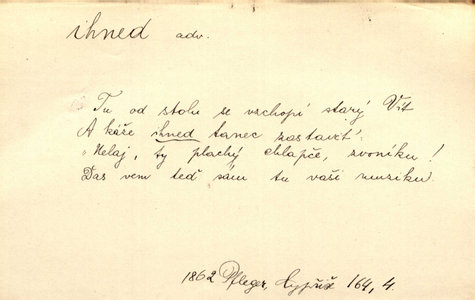 ihned adv.
Tu od stolu se vzchopí starý Vít
A káže ihned tanec zastavit:
"Helaj, ty plachý chlapče, zvoníku!
Ďas vem teď sám tu vaši muziku
1862 Pfleger, Cypřiš 164, 4.